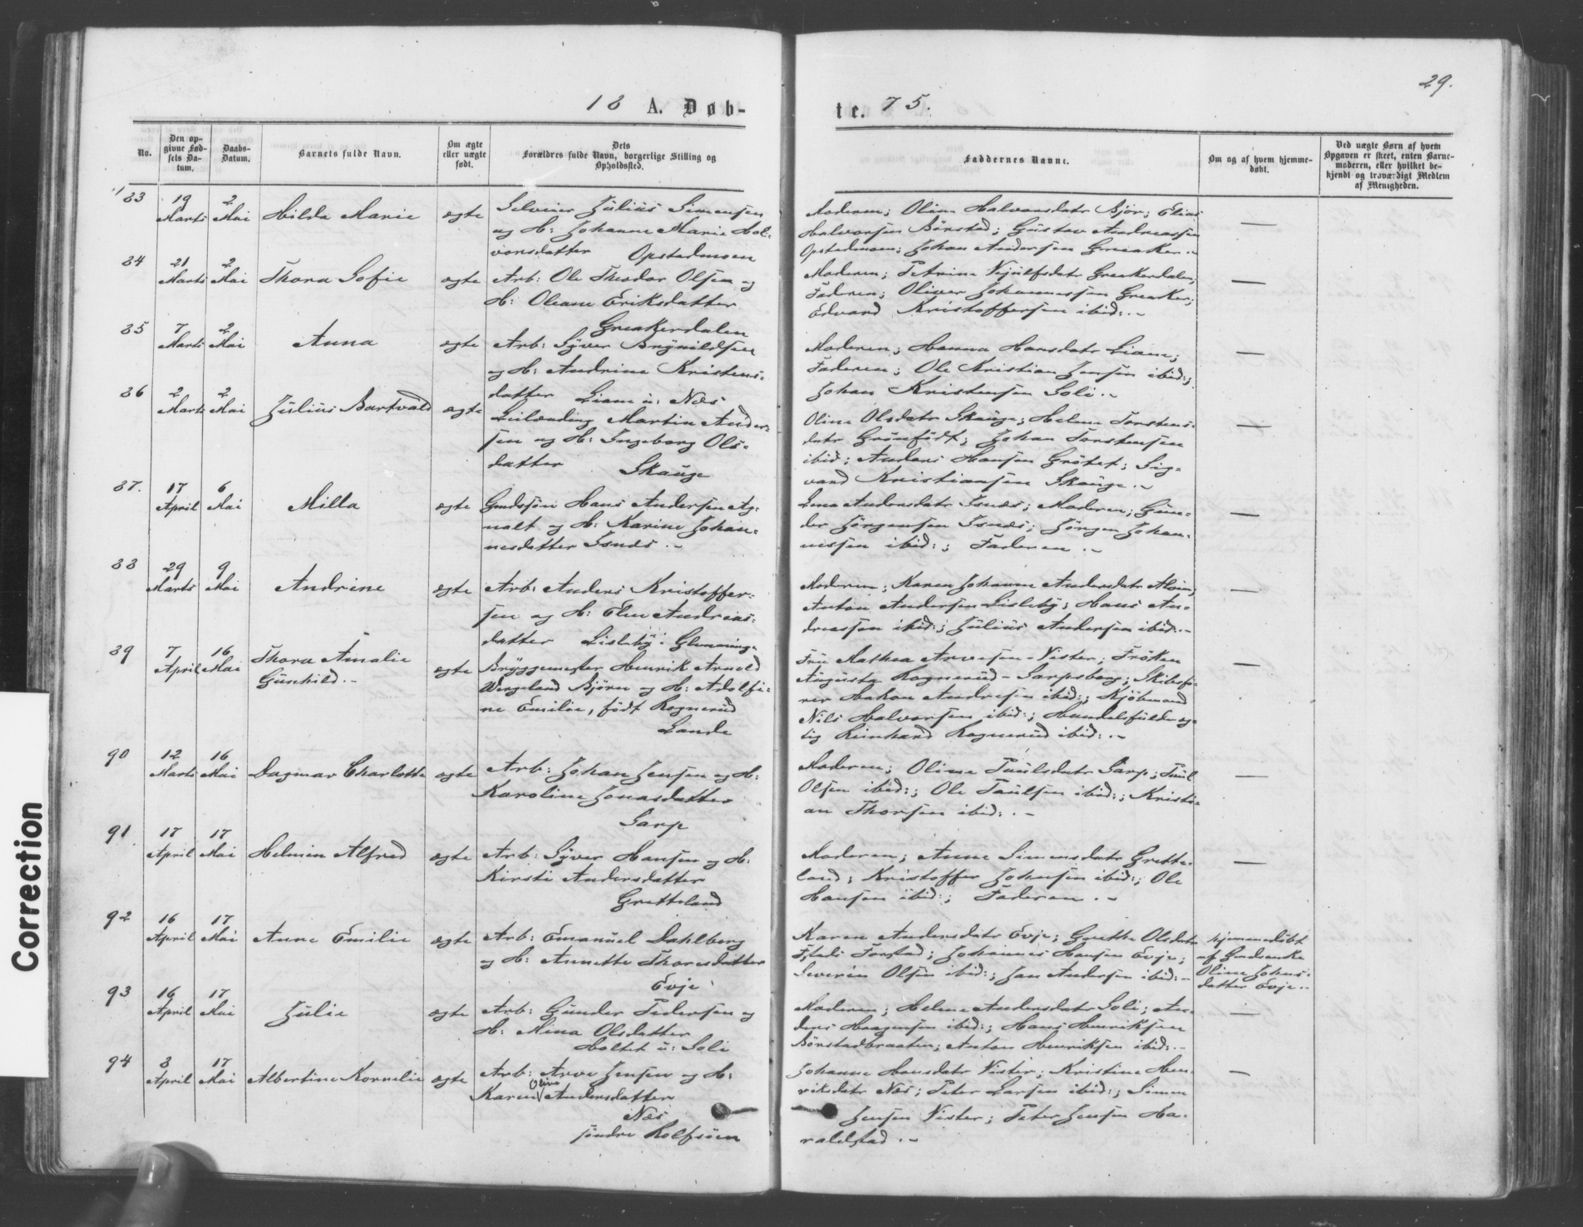 29.
18 A. Døb-
te. 75.
No.
Den op-
givne Fød-
sels Da-
tum.
Daabs-
Datum.
Barnets fulde Navn.
Om ægte
eller uægte
født.
Dets
Forældres fulde Navn, borgerlige Stilling og
Opholdssted.
Faddernes Navne.
Om og af hvem hjemme-
døbt.
Ved uægte Børn af hvem
Opgaven er skeet, enten Barne-
moderen, eller hvilket be-
kjendt og troværdigt Medlem
af Menigheden.
83
19
Marts
2
Mai
Hilda Marie
ægte
Julius Simensen
og H: Johanne Marie Hal-
vorsdatter Opstadmoen
Moderen; Oline Halvorsdatr Bjor; Elias
Halvorsen Børstad; Gustav Andreassen
Opstadmoen; Johan Andersen Greaker.-
84
21
Marts
2
Mai
Thora Sofie
ægte
Arb: Ole Theodor Olsen og
H: Oleane Eriksdatter
Greakerdalen
Moderen; Petrine Greakerdalen,
Faderen; Oliver Johannessen Greaker,
Edvard Kristoffersen ibid:.-
85
7
Marts
2
Mai
Anna
ægte
Arb: Syver Brynildsen
og H: Andrine Kristens-
datter Liane u: Næs
Moderen; Hanna Hansdatr Liane;
Faderen; Ole Kristian Jensen ibid:;
Johan Kristensen Soli.-
86
2
Marts
2
Mai
Julius Bartvald
ægte
Leilænding Martin Ander-
sen og H: Ingeborg Ols-
datter Skauge
Oline Olsdatr Skauge; Helene Torstens-
datr Johan Torstensen
ibid; Anders Hansen Grøtet; Sig-
vard Kristiansen Skauge.-
87.
17
April
6
Mai
Milla
ægte
Gmdssøn Hans Andersen Ag-
nalt og H: Karine Johan-
nesdatter Isnæs.-
Lena Andersdatr Isnæs; Moderen; Gun-
der Jørgensen Isnæs; Jørgen Johan-
nessen ibid:; Faderen.-
88
29
Marts
9
Mai
Andrine
ægte
Arb: Anders Kristoffer-
sen og H: Elen Andreas-
datter Lisleby i Glemminge
Moderen; Karen Johanne Andersdatr
Anton Andersen Lisleby; Hans An-
dreassen ibid:; Julius Andersen ibid:.-
89
7
April
16
Mai
Thora Amalie
Gunhild.-
ægte
Bryggemester Henrik Arnold
Wergeland Bjørn og H: Adolfi-
ne Emilie, født Rognerud
Lande
Fru Mathea Vister; Frøken
Augusta Rognerud - Sarpsborg; Skibsfø-
rer Hakon Andresen ibid:; Kjøbmand
Nils Halvorsen ibid:; Handelsfuldmæg-
tig Reinhard Rognerud ibid:.-
90
12
Marts
16
Mai
Dagmar Charlotte
ægte
Arb: Johan Jensen og H:
Karoline Jonasdatter
Sarp
Moderen; Oline Paulsdatr Sarp; Paul
Olsen ibid:; Ole Paulsen ibid:; Kristi-
an Thorsen ibid:.-
91
17
April
17
Mai
Helmin Alfred
ægte
Arb: Syver Hansen og H:
Kirsti Andersdatter
Gretteland
Moderen; Anne Simensdatr Grette-
land; Kristoffer Johnsen ibid:; Ole
Hansen ibid:; Faderen.-
92
16
April
17
Mai
Anne Emilie
ægte
Arb: Emanuel Dahlberg
og H: Annette Thoresdatter
Evje
Karen Andersdatr Evje; Grethe Olsdatr
Johannes Hansen Evje;
Severin Olsen ibid:; Jan Andersen ibid:.-
hjemmedøbt
af Gudmoder
Oline Johns-
datter Evje.-
93
16
April
17
Mai
Julie
ægte
Arb: Gunder Pedersen og
H: Mina Olsdatter
Holtet u: Soli
Moderen; Helene Andersdatr Soli; An-
ders Haagensen ibid:; Hans Henriksen
Børstadbraaten; Anton Henriksen ibid:.-
94
3
April
17
Mai
Albertine Kornelie
ægte
Arb: Arne Jensen og H:
Karen Oline Andersdatter
Næs
søndre Rolfsøen
Johanne Hansdatr Vister; Kristine Hen-
riksdatr Næs; Peter Larsen ibid:; Simen
Jensen Vister; Peter Jensen Ha-
raldstad.-
Correction